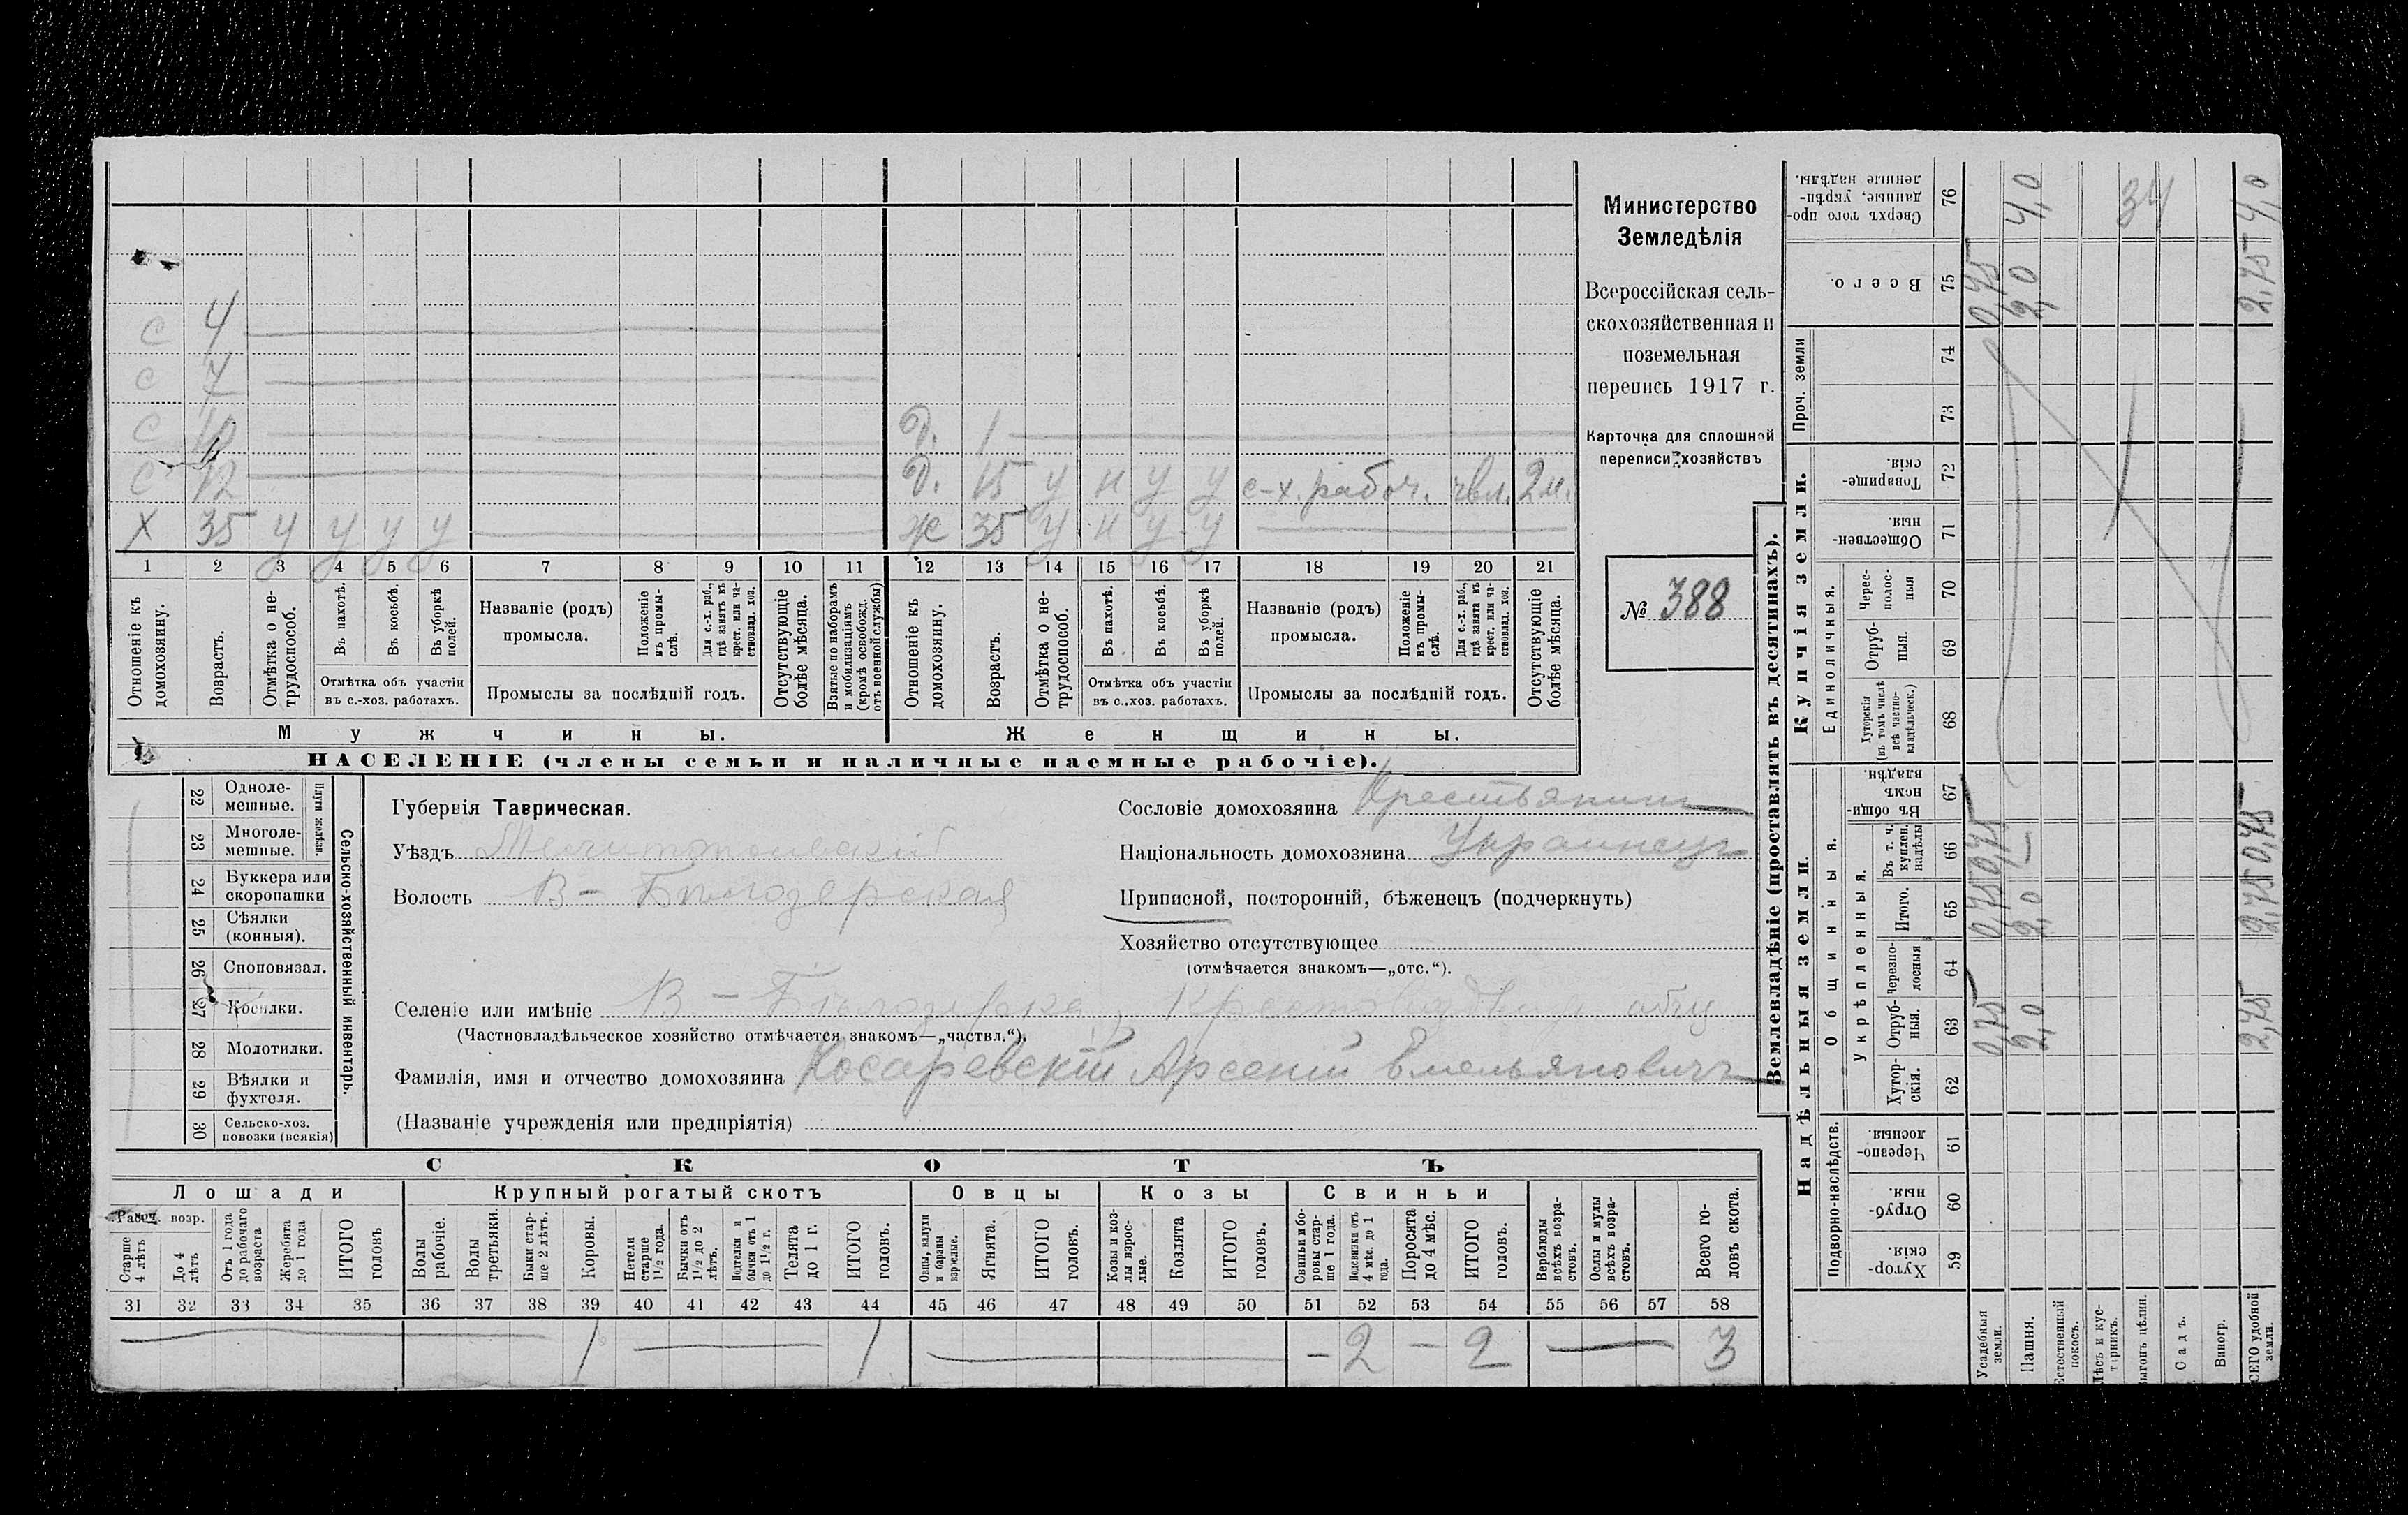 С 4
С 7
С 10 Д. 1
С 12 Д. 15 у н у у с-х. рабоч. чвл. 2 м.
Х 35 у у у у Ж 35 у н у у
1 2 3 4 5 6 7 8 9 10 11 12 13 14 15 16 17 18 19 20 21
Отношеніе къ домохозяину.
Возрастъ.
Отмѣтка о нетрудоспособ.
Въ пахотѣ.
Въ косьбѣ.
Въ уборкѣ полей.
Отмѣтка объ участіи
въ с.-хоз. работахъ.
Названіе (родъ)
промысла.
Положеніе въ промыслѣ.
Для с.-х. раб., гдѣ занятъ въ крест. или частновлад. хоз.
Промыслы за послѣдній годъ.
Отсутствующіе болѣе мѣсяца.
Взятые по наборамъ и мобилизаціямъ (кромѣ освобожд. отъ военной службы)
Отношеніе къ домохозяину.
Возрастъ.
Отмѣтка о нетрудоспособ.
Въ пахотѣ.
Въ косьбѣ.
Въ уборкѣ полей.
Отмѣтка объ участіи
въ с.-хоз. работахъ.
Названіе (родъ)
промысла.
Положеніе въ промыслѣ.
Для с.-х. раб., гдѣ занята въ крест. или частновлад. хоз.
Промыслы за послѣдній годъ.
Отсутствующіе болѣе мѣсяца.
Мужчины. Женщины.
НАСЕЛЕНІЕ (члены семьи и наличные наемные рабочіе).
Министерство
Земледѣлія
Всероссійская сель-
скохозяйственная и
поземельная
перепись 1917 г.
Карточка для сплошной
переписи хозяйствъ
№ 388
Сельско-хозяйственный инвентарь.
Плуги желѣзн.
22 Однолемешные.
23 Многолемешные.
24 Буккера или скоропашки
25 Сѣялки (конныя).
26 Сноповязал.
27 Косилки.
28 Молотилки.
29 Вѣялки и фухтеля.
30 Сельско-хоз. повозки (всякія)
Губернія Таврическая.
Уѣздъ Мелитопольскій
Волость В-Бѣлозерская
Сословіе домохозяина Крестьянинъ
Національность домохозяина Украинецъ
Приписной, посторонній, бѣженецъ (подчеркнуть)
Хозяйство отсутствующее
(отмѣчается знакомъ—„отс.“).
Селеніе или имѣніе В.-Бѣлозерка, Крестовоздвиж общ
(Частновладѣльческое хозяйство отмѣчается знакомъ—„частвл.“).
Фамилія, имя и отчество домохозяина Косаревскій Арсеній Емельяновичъ
(Названіе учрежденія или предпріятія)
СКОТЪ
Лошади Крупный рогатый скотъ Овцы Козы Свиньи
Рабоч. возр.
Старше 4 лѣтъ
До 4 лѣтъ
Отъ 1 года до рабочаго возраста
Жеребята до 1 года
ИТОГО головъ
Волы рабочіе.
Волы третьяки.
Быки старше 2 лѣтъ.
Коровы.
Нетели старше 1½ года.
Бычки отъ 1½ до 2 лѣтъ.
Подтелки и бычки отъ 1 до 1½ г.
Телята до 1 г.
ИТОГО головъ.
Овцы, валухи и бараны взрослые.
Ягнята.
ИТОГО головъ.
Козы и козлы взрослые.
Козлята
ИТОГО головъ.
Свиньи и боровы старше 1 года.
Подсвинки отъ 4 мѣс. до 1 года.
Поросята до 4 мѣс.
ИТОГО головъ.
Верблюды всѣхъ возрастовъ.
Ослы и мулы всѣхъ возрастовъ.
Всего головъ скота.
31 32 33 34 35 36 37 38 39 40 41 42 43 44 45 46 47 48 49 50 51 52 53 54 55 56 57 58
— 1 — 1 — – 2 – 2 — 3
Землевладѣніе (проставлять въ десятинахъ).
Надѣльныя земли. Купчія земли. Проч. земли
Подворно-наслѣдств.
Общинныя.
Укрѣпленныя.
Единоличныя.
Хуторскія 59
Отрубныя. 60
Черезполосныя. 61
Хуторскія. 62
Отрубныя. 63
Черезполосныя 64
Итого. 65
Въ т. ч. куплен. надѣлы 66
Въ общинномъ владѣн. 67
Хуторскія (въ томъ числѣ всѣ частновладѣльческ.) 68
Отрубныя. 69
Черезполосныя 70
Общественныя. 71
Товарищескія. 72
73
74
Всего. 75
Сверхъ того проданные, укрѣпленные надѣлы. 76
Усадебныя земли. 0,75 0,75 0,75 0,75
Пашня. 2,0 2,0 – 2,0 4,0
Естественный покосъ.
Лѣсъ и кустарникъ.
Выгонъ цѣлин. 34
Садъ.
Виногр.
ВСЕГО удобной земли. 2,75 2,75 0,75 2,75 4,0